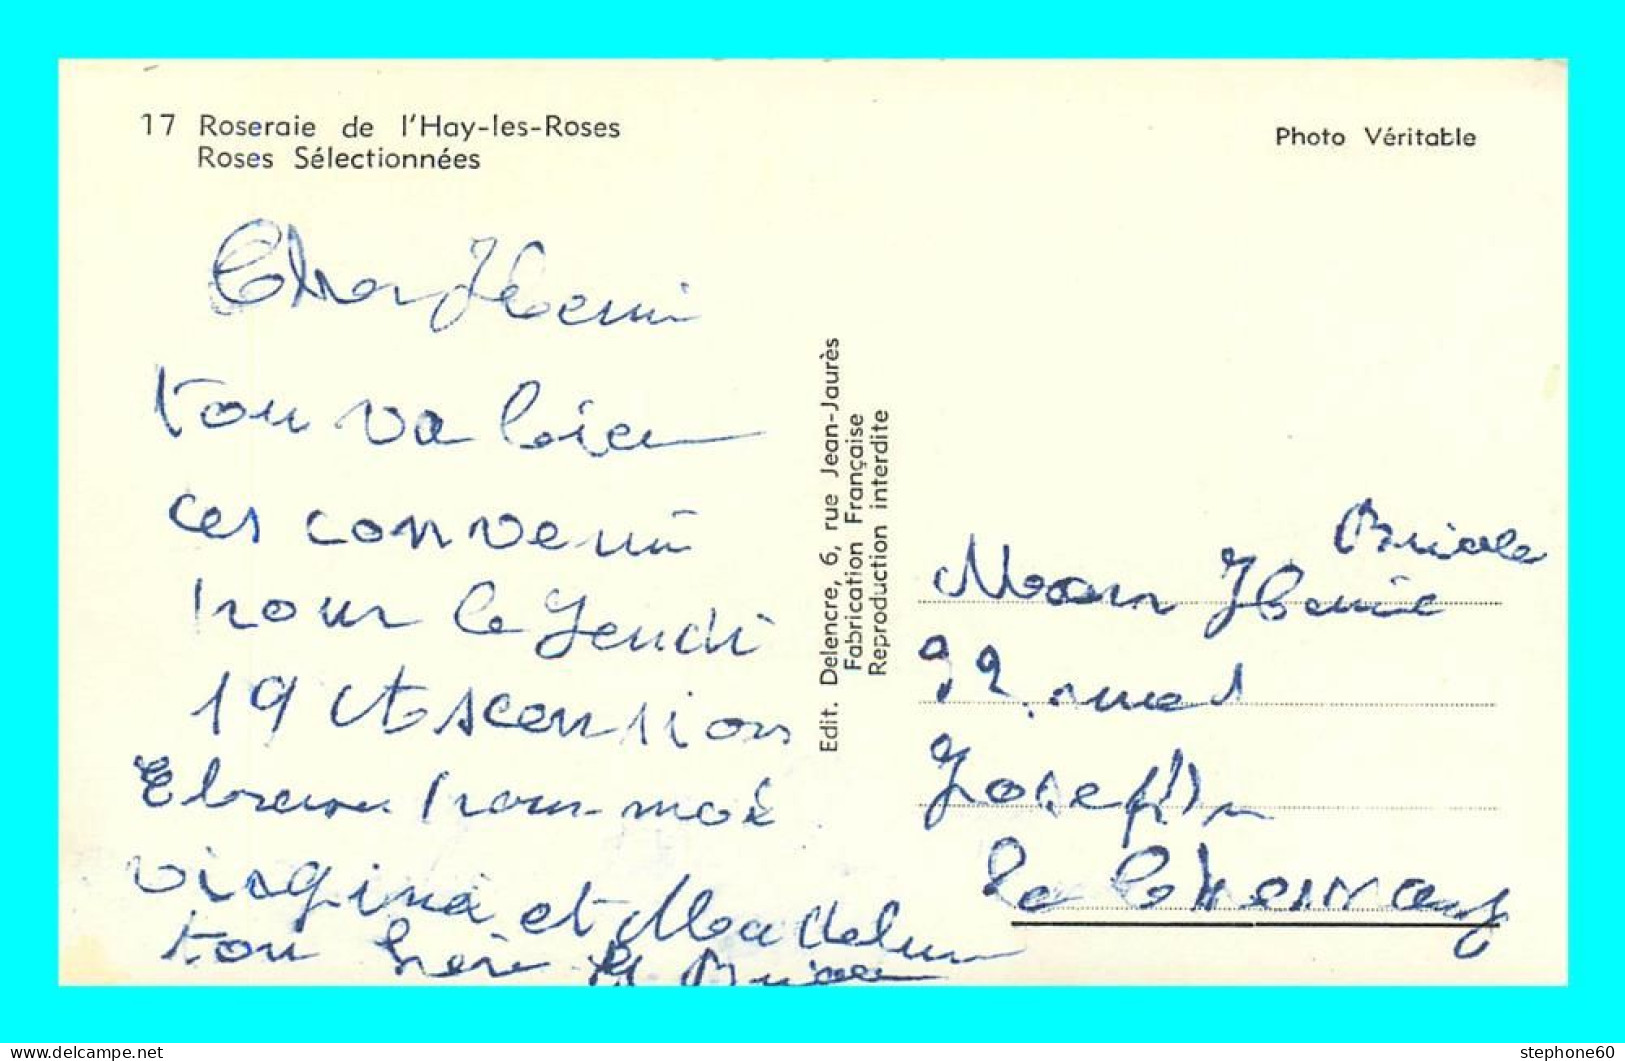 17 Roseraie de l'Hay-les-Roses
Roses Sélectionnées
Photo Véritable
Cher Henri
tou va bien
ces convenu
pour le Jeudi
19 Ascension
pour moi
virgina et Madelen
ton frère
Edit. Delencre, 6, rue Jean-Jaurès
Fabrication Française
Reproduction interdite
Henri
Joseph
le Chesnay
delcampe.net
stephone60